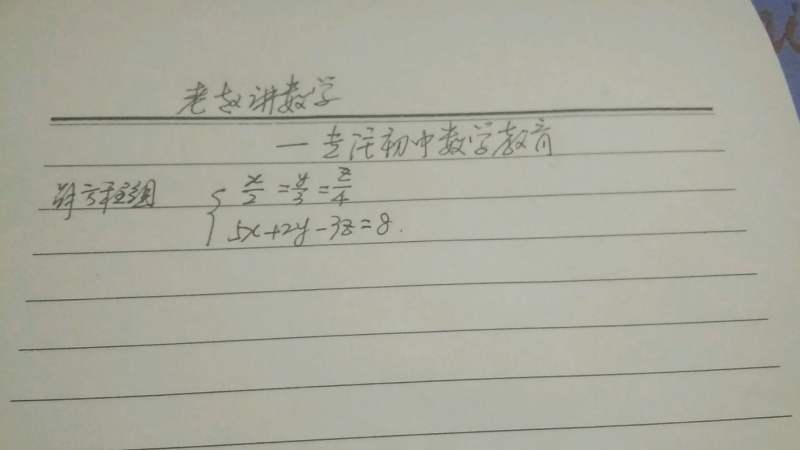 老赵讲数学
—专注初中数学教育
解方程组 { x/2 = y/3 = z/4
5x+2y-3z=8.